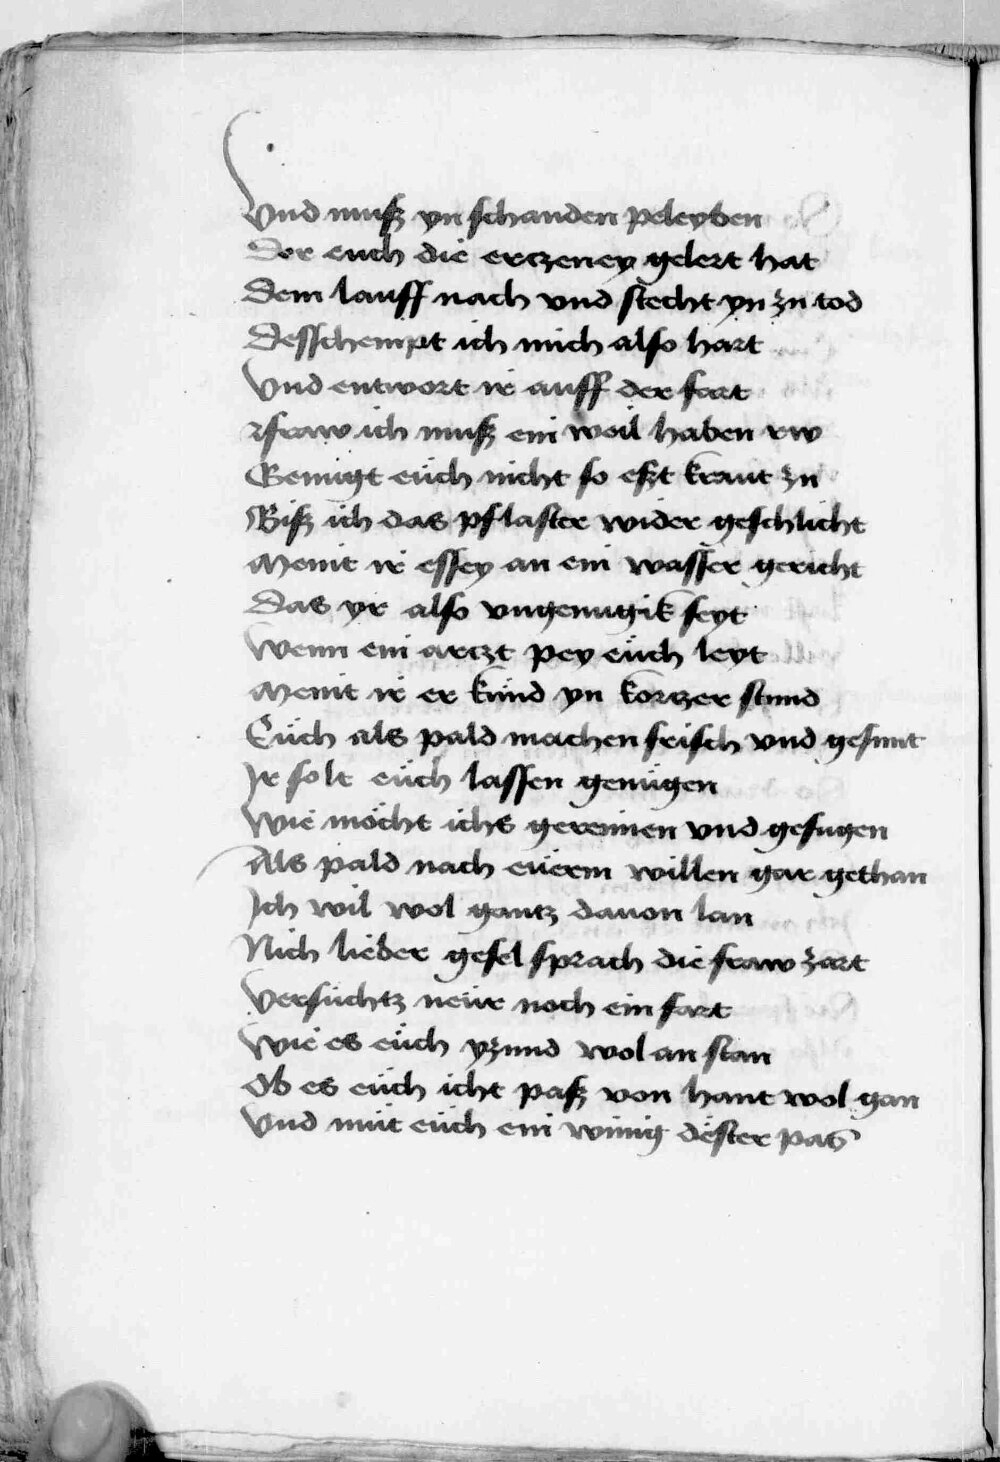 Vnd muß yn schanden peleyben
Der euch die erczeney gelert hat
Dem lauff nach vnd stecht yn zu tod
Desschempt ich mich also hart
Vnd entwort ir auff der fart
fraw ich muß ein weil haben rw
Genugt euch nicht so eßt kraut zu
Biß ich das pflaster wider geschlicht
Meint ir essey an ein wasser gericht
Das yr also vngenugik seyt
Wenn ein arczt pey euch leyt
Meint ir er kund yn kortzer stund
Euch als pald machen frisch vnd gesunt
Ir solt euch lassen genugen
Wie mocht ichs gereimen vnd gefugen
Als pald nach euerm willen gar gethan
Ich wil wol gantz dauon lan
Nich lieber gesel sprach die fraw zart
Versuchtz neur noch ein fart
Wie es euch yzund wol an stan
Ob es euch icht paß von hant wol gan
Vnd mut euch ein winig dester pas